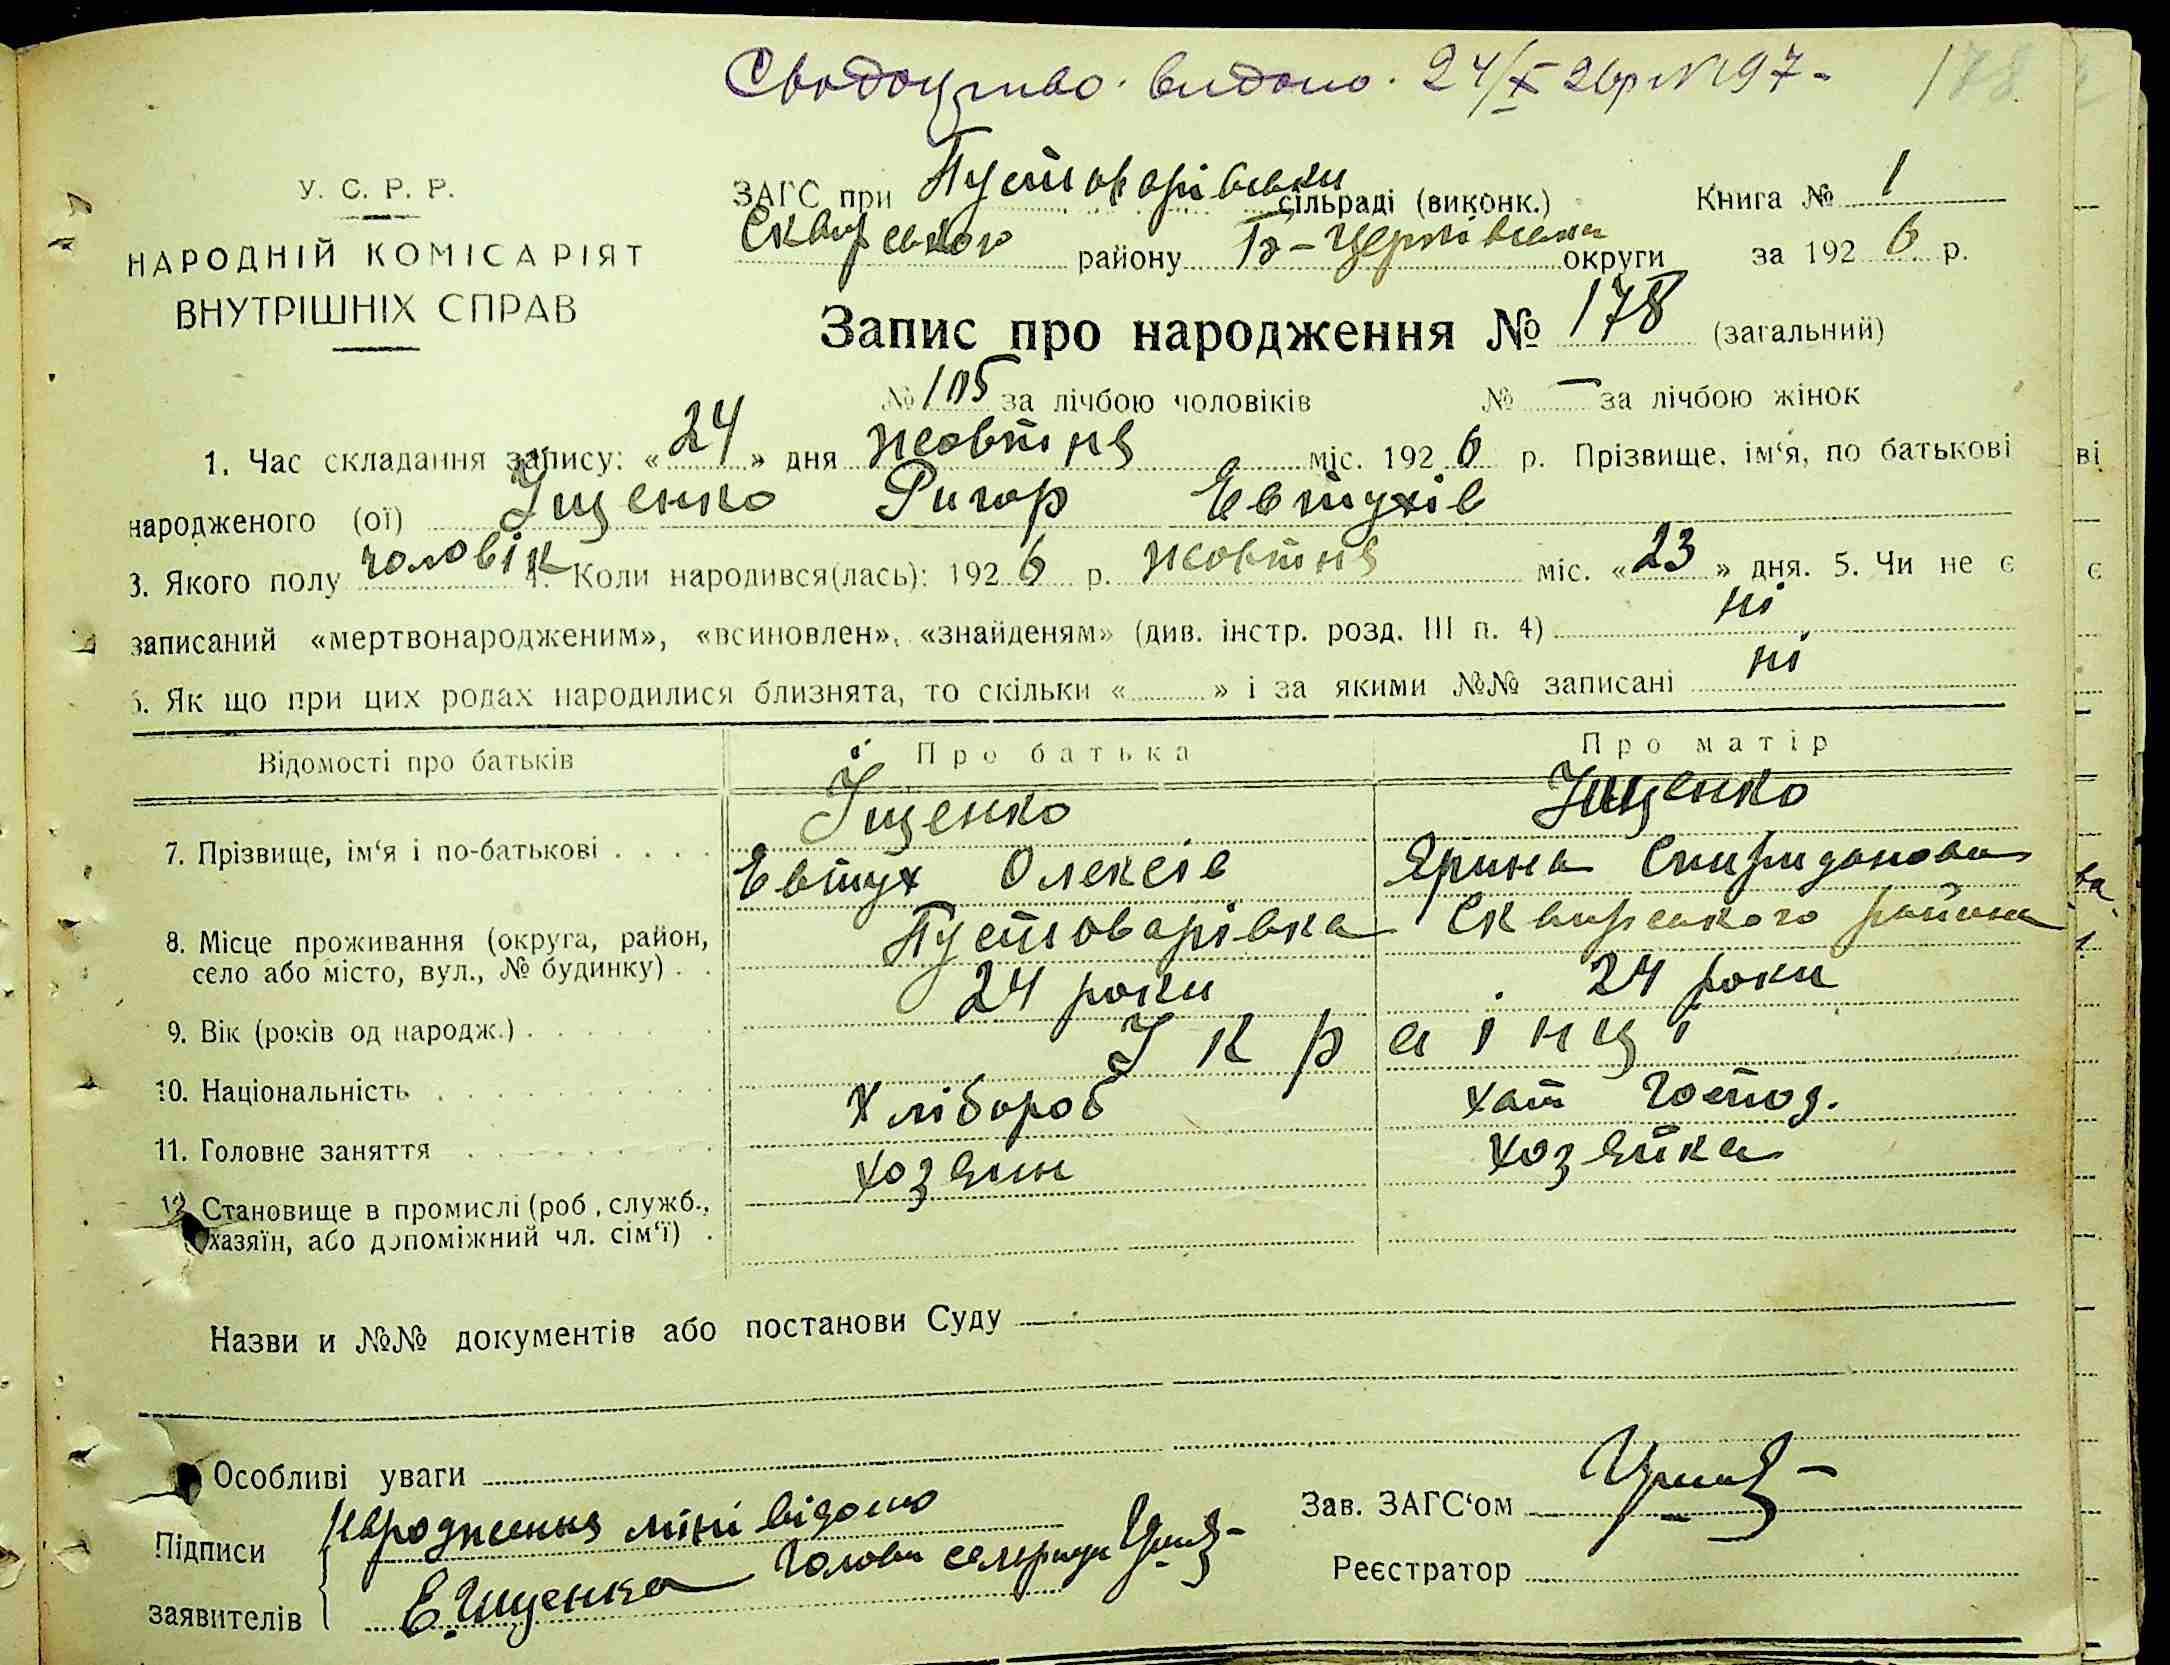 Свидоцтво видано 24/X 26р №197 178
У. С. Р. Р.
НАРОДНІЙ КОМІСАРІЯТ
ВНУТРІШНІХ СПРАВ
ЗАГС при Пустоварівський сільраді (виконк.) Книга № 1
Сквирського району Б-Церківська округи за 1926 р.
Запис про народження № 178 (загальний)
№ 105 за лічбою чоловіків № — за лічбою жінок
1. Час складання запису: «24» дня жовтня міс. 1926 р. Прізвище, ім‘я, по батькові
народженого (ої) Іщенко Ригор Евтухів
3. Якого полу чоловік 4. Коли народився(лась): 1926 р. жовтня міс. «23» дня. 5. Чи не є
записаний «мертвонародженим», «всиновлен», «знайденям» (див. інстр. розд. III п. 4) ні
6. Як що при цих родах народилися близнята, то скільки « » і за якими №№ записані ні
Відомості про батьків Про батька Про матір
7. Прізвище, ім‘я і по-батькові Іщенко Іщенко
Евтух Олексів Ярина Спиридонова
8. Місце проживання (округа, район, село або місто, вул., № будинку) Пустоварівка Сквирського района
9. Вік (років од народж.) 24 роки 24 роки
10. Національність Українці
11. Головне заняття Хлібороб хат господ.
12. Становище в промислі (роб., служб., хазяїн, або допоміжний чл. сім‘ї) хозяин хозяйка
Назви и №№ документів або постанови Суду
Особливі уваги
Підписи заявителів Народження міні відомо
Е. Ищенко Голова сельради
Зав. ЗАГС‘ом
Реєстратор